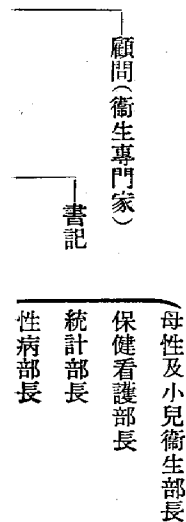 顧問(衞生專門家)
書記
母性及小兒衞生部長
保健看護部長
統計部長
性病部長